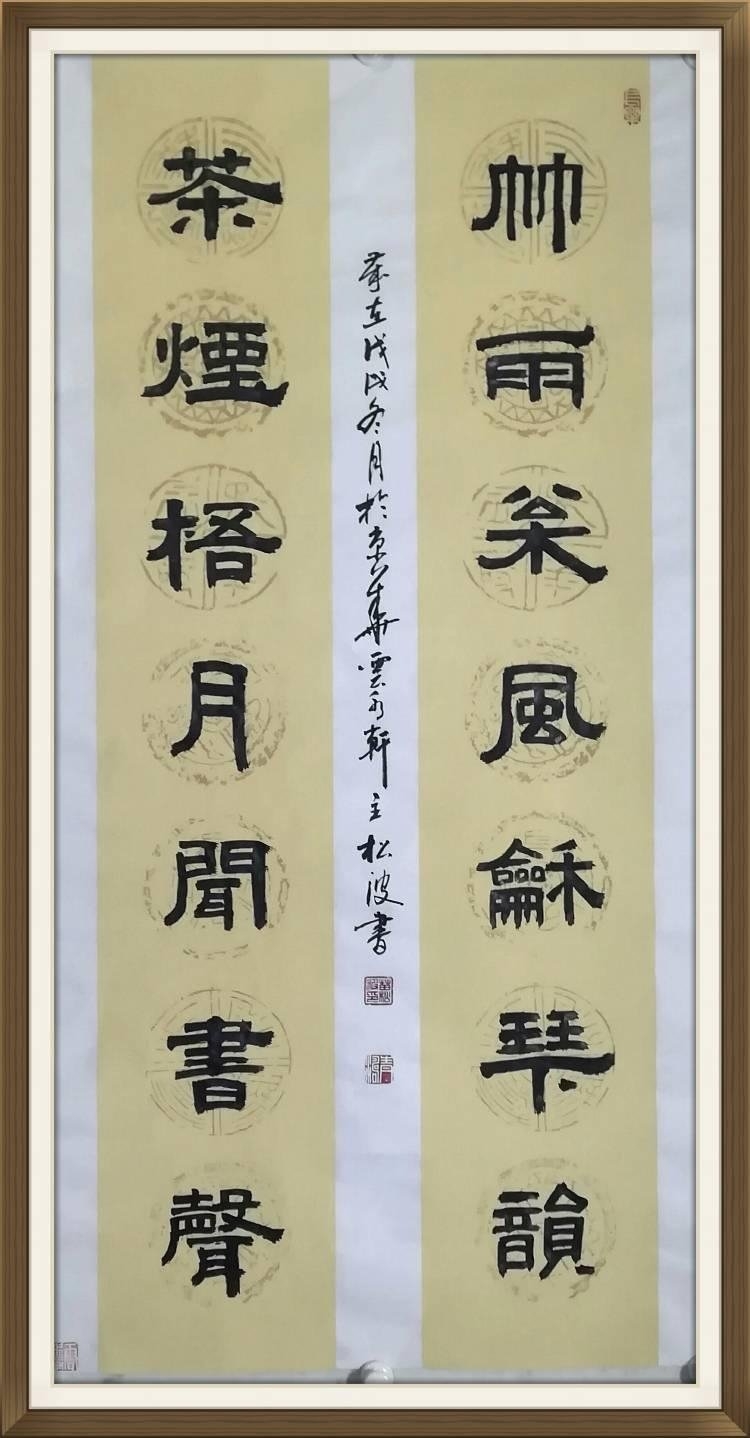 竹雨枀風龢琴韻
茶煙梧月聞書聲
歲在戊戌冬月於京華雲水軒主松波書